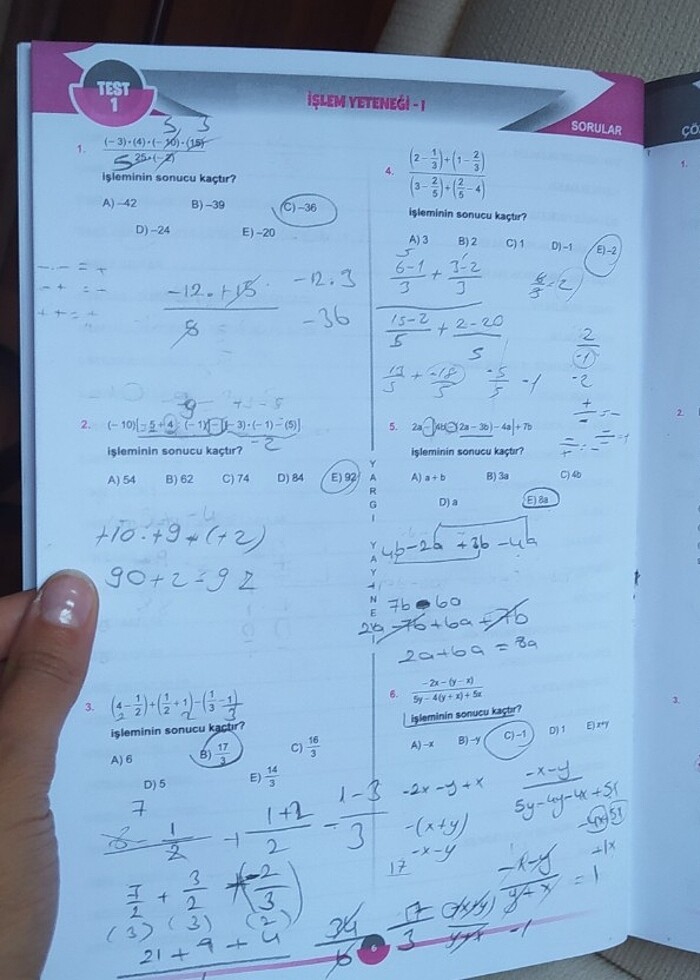 TEST
1
İŞLEM YETENEĞİ - I
SORULAR
5, 3
1. (-3)·(4)·(-10)·(15)
5 25·(-2)
işleminin sonucu kaçtır?
A) -42 B) -39 C) -36
D) -24 E) -20
-·- = +
-·+ = -
+·+ = +
-12·+15
5
-12·3
-36
-9
işleminin sonucu kaçtır?
A) 54 B) 62 C) 74 D) 84 E) 92
-2
+10·+9+(+2)
90+2=92
3. (4-1/2)+(1/2+1)-(1/3-1)
işleminin sonucu kaçtır?
A) 6 B) 17/3 C) 16/3
D) 5 E) 14/3
7
8-1
2
1+2
2
1-3
3
7/2 + 3/2 -2/3
(3) (3) (2)
21+9+4
34
6
17
3
YARGI YAYINEVİ
4. (2-1/3)+(1-2/3)
(3-2/5)+(2/5-4)
işleminin sonucu kaçtır?
A) 3 B) 2 C) 1 D) -1 E) -2
5
6-1/3 + 3-2/3
6/3=2
15-2/5 + 2-20/5
13/5 + -18/5 -5/5 -1
2
-1
-2
5. 2a-[4b-(2a-3b)-4a]+7b
işleminin sonucu kaçtır?
A) a+b B) 3a C) 4b
D) a E) 8a
4b-2a+3b-4a
7b-6a
2a-7b+6a+7b
2a+6a=8a
6. -2x-(y-x)
5y-4(y+x)+5x
işleminin sonucu kaçtır?
A) -x B) -y C) -1 D) 1 E) x+y
-2x-y+x
-(x+y)
-x-y
-x-y
5y-4y-4x+5x
-4x+5x
+1x
17
-x-y
y+x
= 1
-(x+y)
y+x
-1
6
ÇÖ
1.
2.
3.